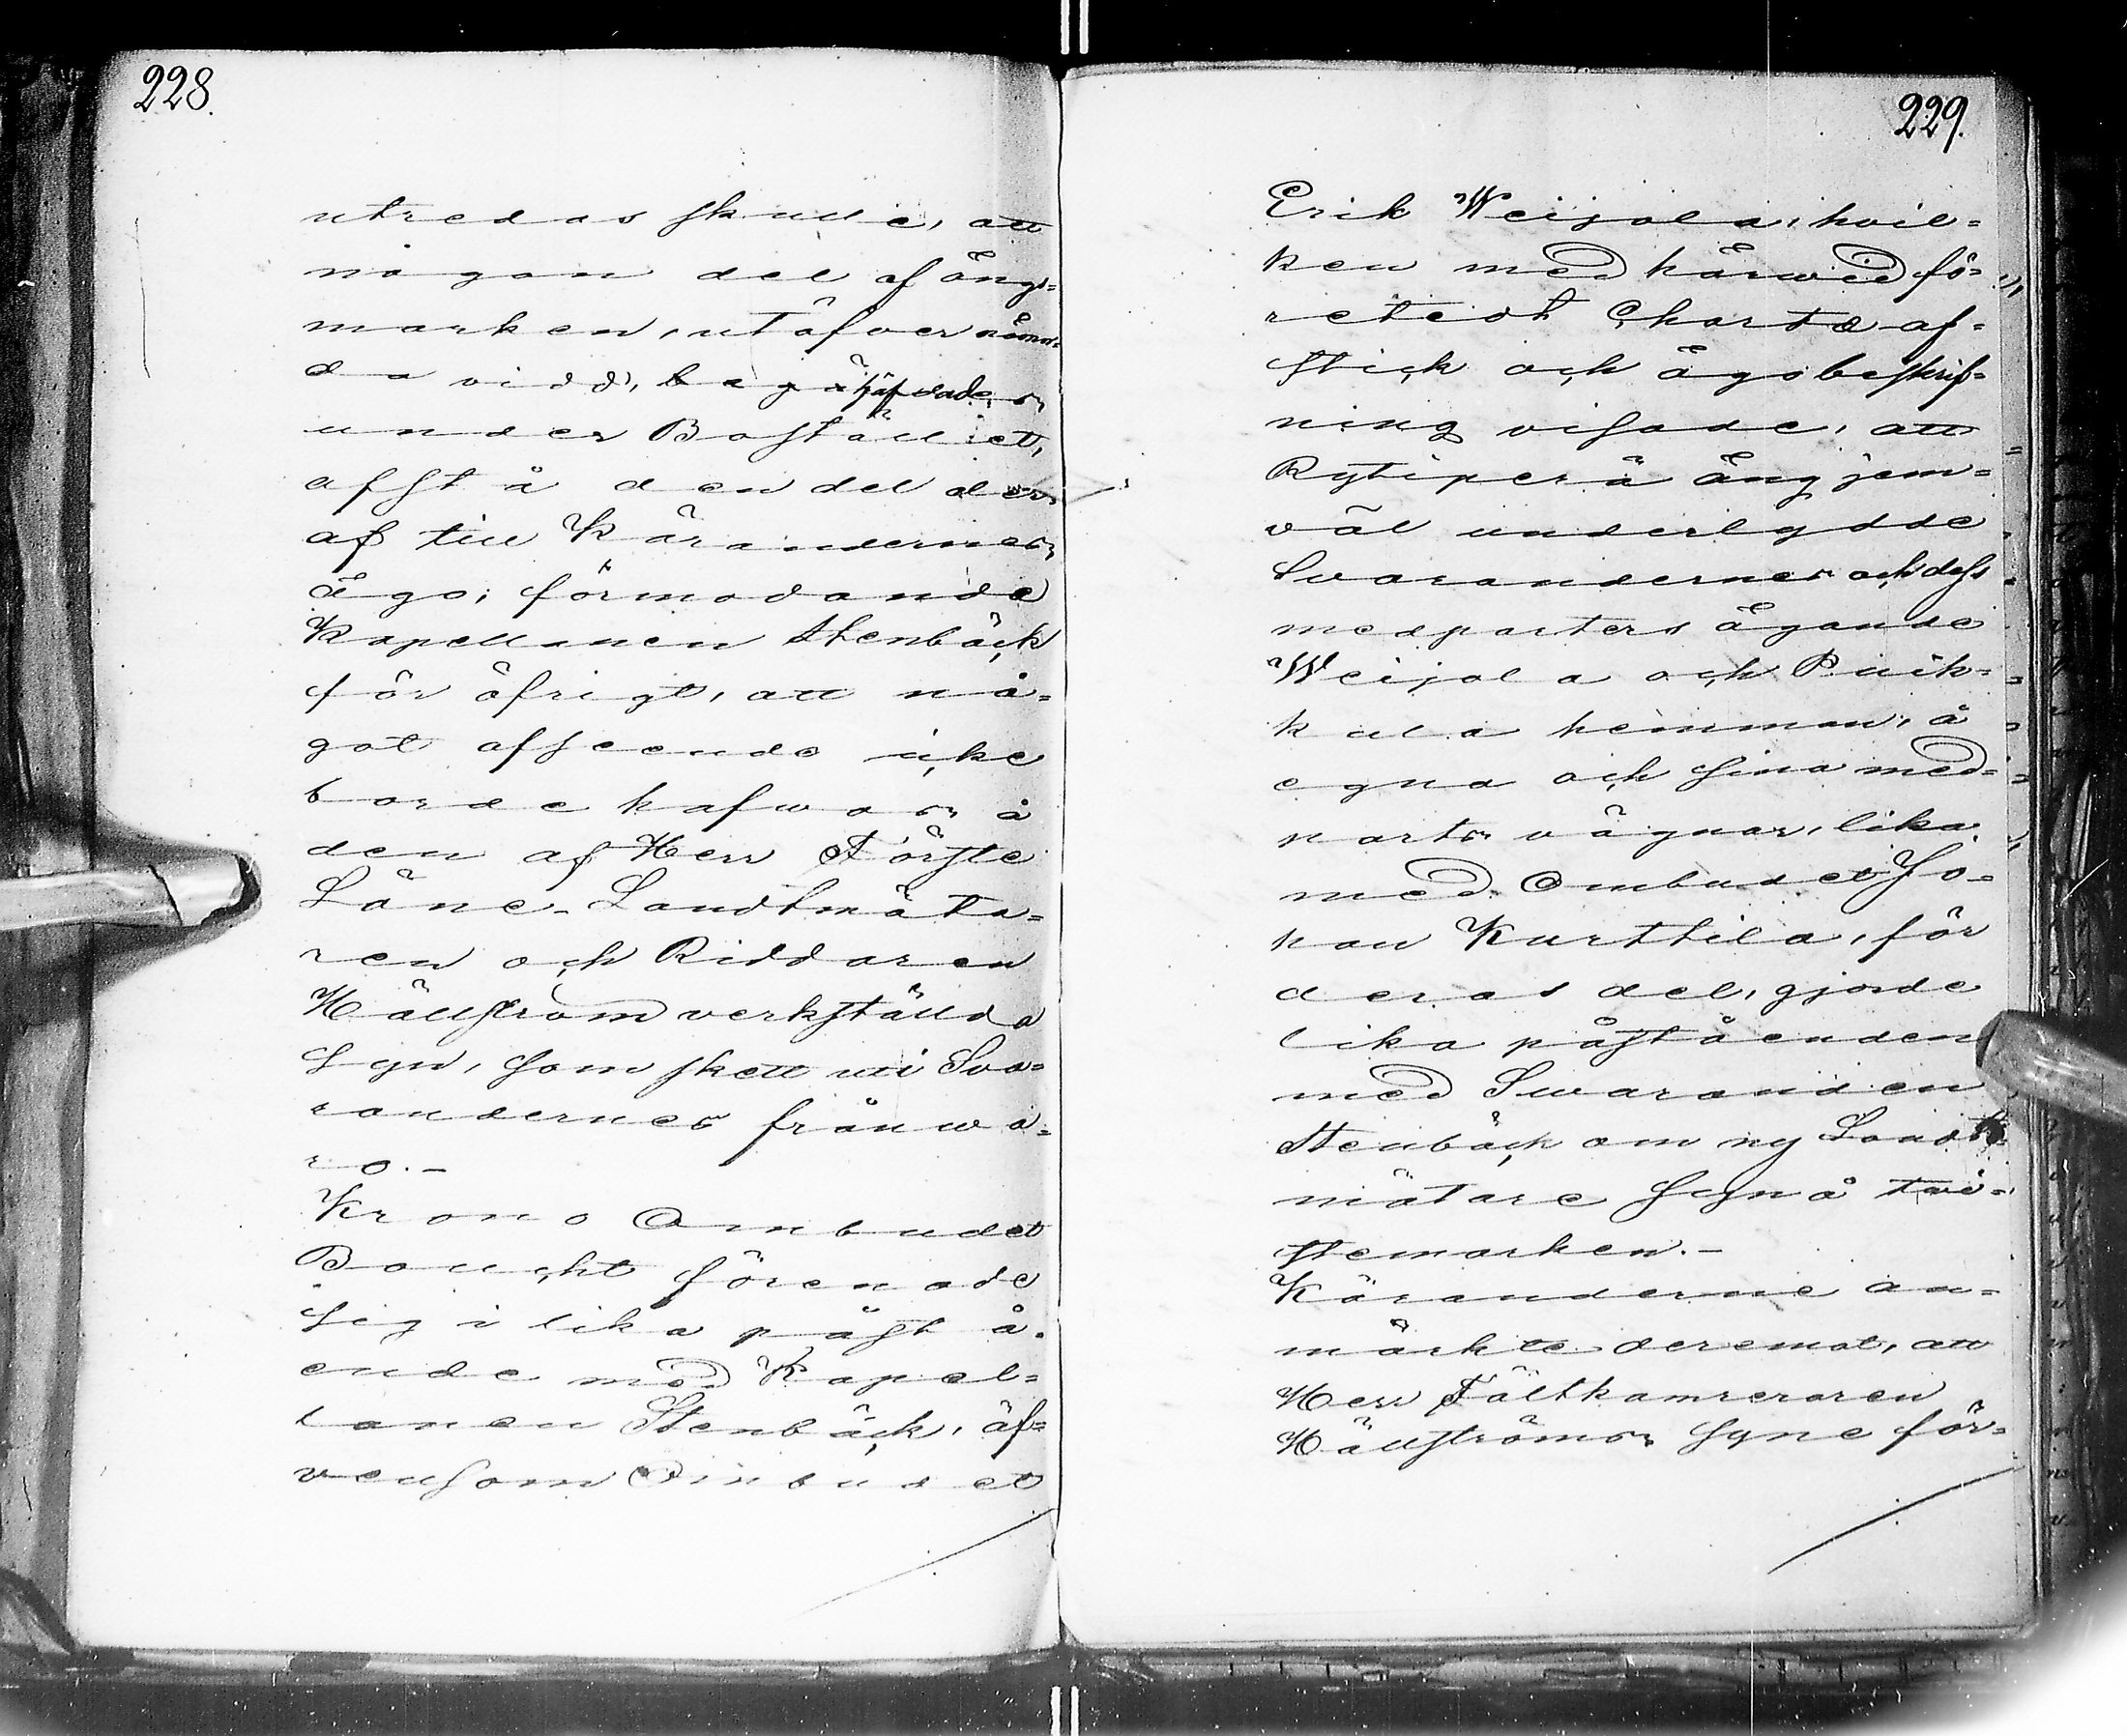 228.
utredas skulle, att
någon del af ängs=
marken, utöfver nämn=
da vidd, häfdades
under Bostället,
afstå den del der=
af till Kärandernes
ägo; förmodande
Kapellanen Stenbäck
för öfrigt, att nå=
got afseende icke
borde hafwas å
den af Herr Förste
Läne-Landtmäta=
ren och Riddaren
Hällström verkställda
Syn, som skett uti Sva=
randernes frånwa=
ro.-
Krono Ombudet
Boucht förenade
sig i lika påstå=
ende med Kapel=
lanen Stenbäck, äf=
vensom Ombudet
229.
Erik Weijola, hvil=
ken med härwid fö=
reteedt Charta af=
stick och ägobeskrif=
ning visade, att
Rytiperä äng jem=
väl underlydde
Swarandernes och dess
medparters ägande
Weijola och Puik=
kula hemman, å
egna och sina med=
parts vägnar, lika
med Ombudet Jo=
han Kurttila, för
deras del, gjorde
lika påståenden
med Swaranden
Stenbäck om ny Landt=
mätare Syn å twi=
stemarken.-
Käranderne an=
märkte deremot, att
Herr Fältkamreraren
Hällströms Syne för=